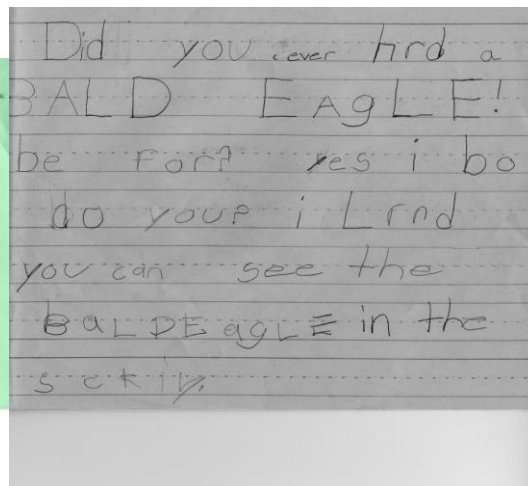 Did you ever hrd a
BALD EAgLE!
be for? yes i bo
do you? i Lrnd
you can see the
BaLDEagLE in the
sckiy.